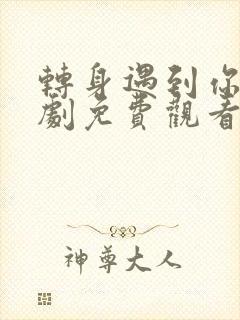 轉身遇到你
劇免費觀看
神尊大人